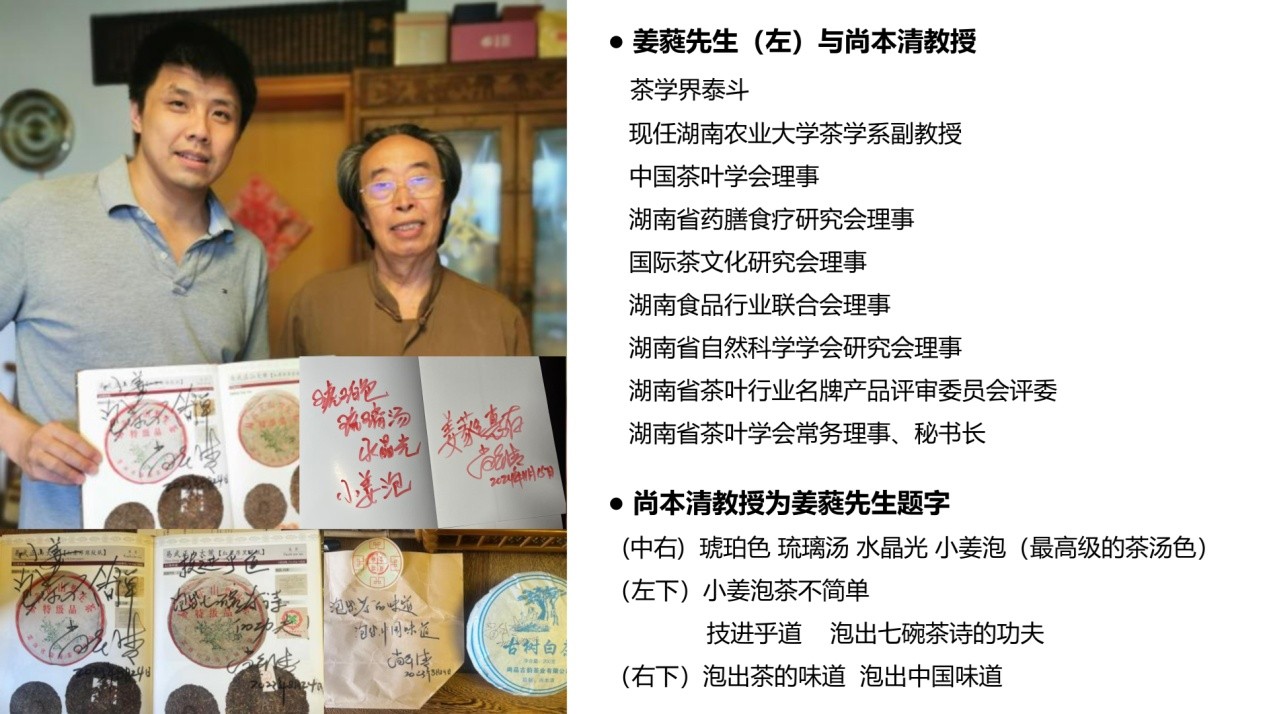 ● 姜蕤先生（左）与尚本清教授
茶学界泰斗
现任湖南农业大学茶学系副教授
中国茶叶学会理事
湖南省药膳食疗研究会理事
国际茶文化研究会理事
湖南食品行业联合会理事
湖南省自然科学学会研究会理事
湖南省茶叶行业名牌产品评审委员会评委
湖南省茶叶学会常务理事、秘书长
● 尚本清教授为姜蕤先生题字
(中右) 琥珀色 琉璃汤 水晶光 小姜泡（最高级的茶汤色）
（左下）小姜泡茶不简单
技进乎道 泡出七碗茶诗的功夫
（右下）泡出茶的味道 泡出中国味道
琥珀色
琉璃汤
水晶光
小姜泡
特级品
小姜
特级品
技进乎道
特级品
泡出茶的味道
泡出中国味道
古树白茶